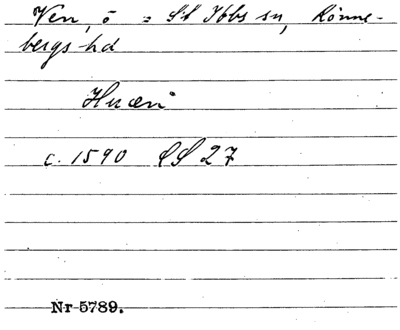 Ven, ö = S:t Ibbs sn, Rönne-
bergs hd
Huæn
c. 1590 SS 27
Nr 5789.